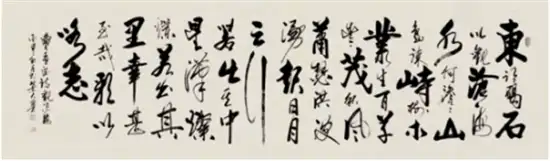 東臨碣石
以觀滄海
水何澹澹山
島竦峙樹木
叢生百草
豐茂秋風
蕭瑟洪波
湧起日月
之行
若出其中
星漢燦
爛若出其
里幸甚
至哉歌以
咏志
曹孟德詩觀滄海